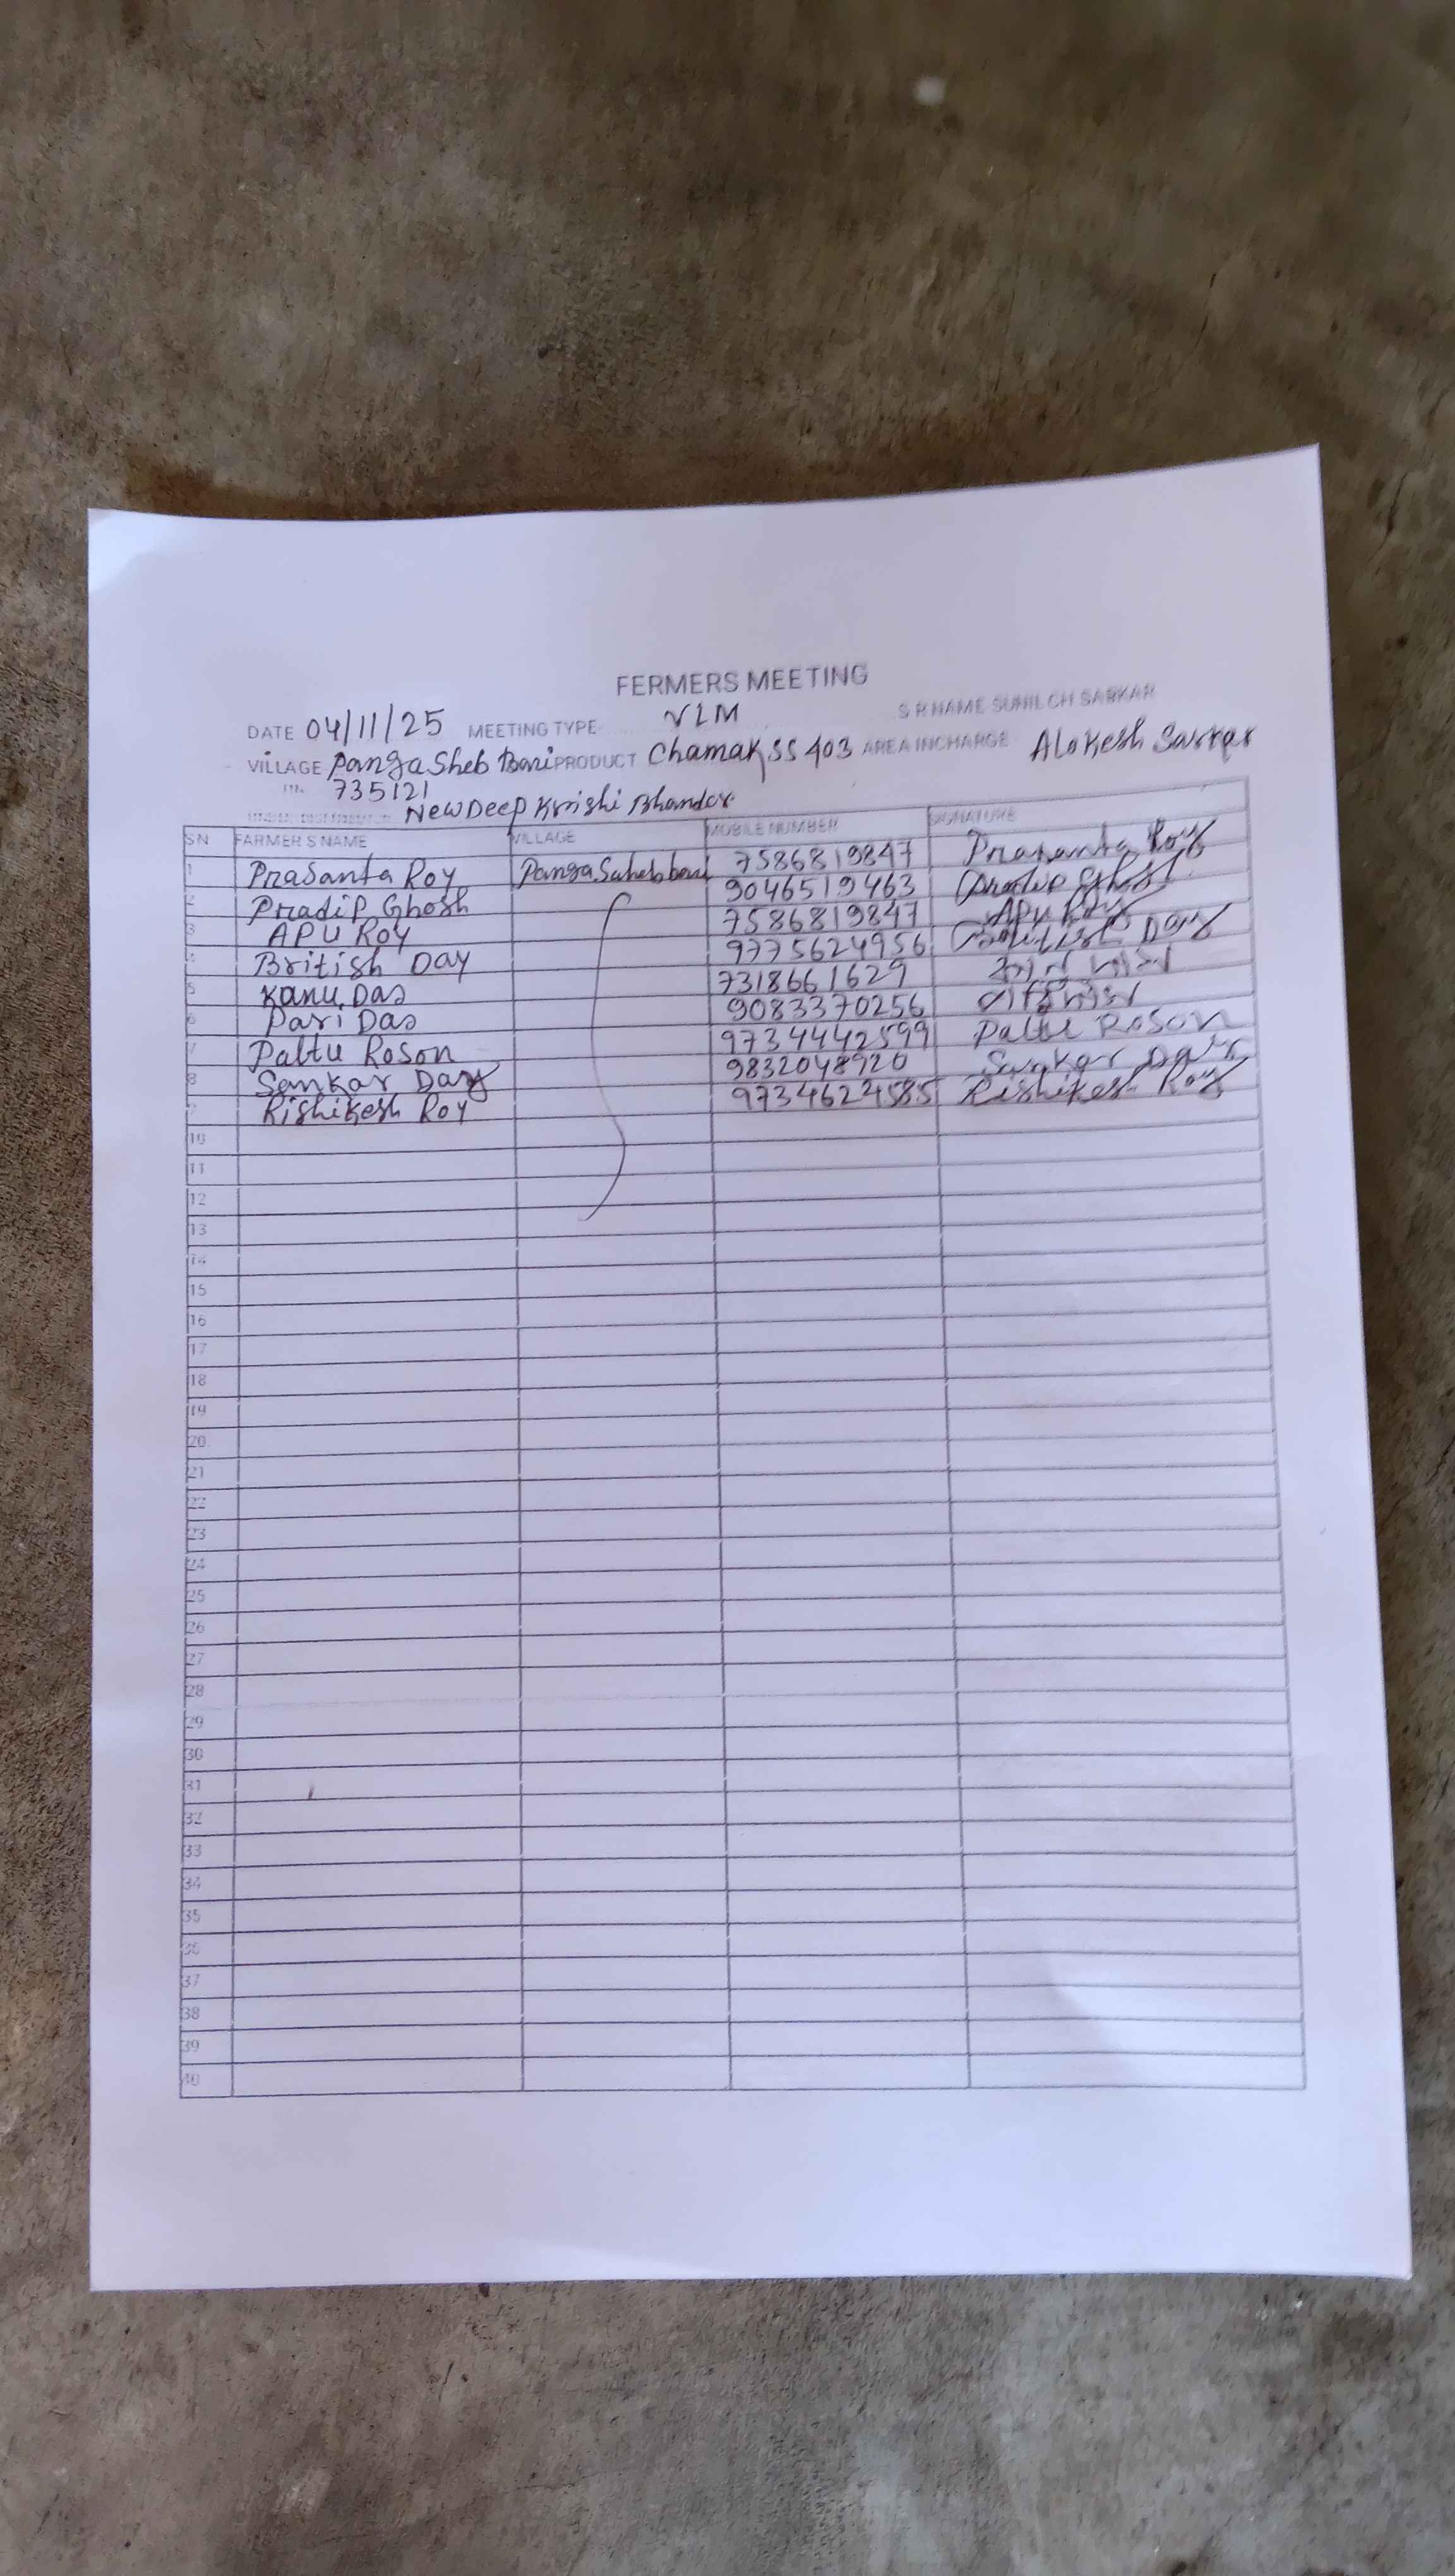 FERMERS MEETING
DATE 04/11/25 MEETING TYPE VLM S R NAME SUNIL CH SARKAR
VILLAGE Panga Sheb Bari PRODUCT Chamak SS 403 AREA INCHARGE Alokesh Sarkar
735121
New Deep Krishi Bhandar
SN FARMER'S NAME VILLAGE MOBILE NUMBER SIGNATURE
1 Prasanta Roy Panga Saheb bari 7586819847 Prasanta Roy
2 Pradip Ghosh 9046519463 Pradip Ghosh
3 APU ROY 7586819847 Apu Roy
4 British Day 9775624956 British Day
5 Kanu Das 7318661629
6 Pari Das 9083370256
7 Paltu Roson 9734442599 Paltu Roson
8 Sankar Day 9832048920 Sankar Day
9 Rishikesh Roy 9734624585 Rishikesh Roy
10
11
12
13
14
15
16
17
18
19
20
21
22
23
24
25
26
27
28
29
30
31
32
33
34
35
36
37
38
39
40